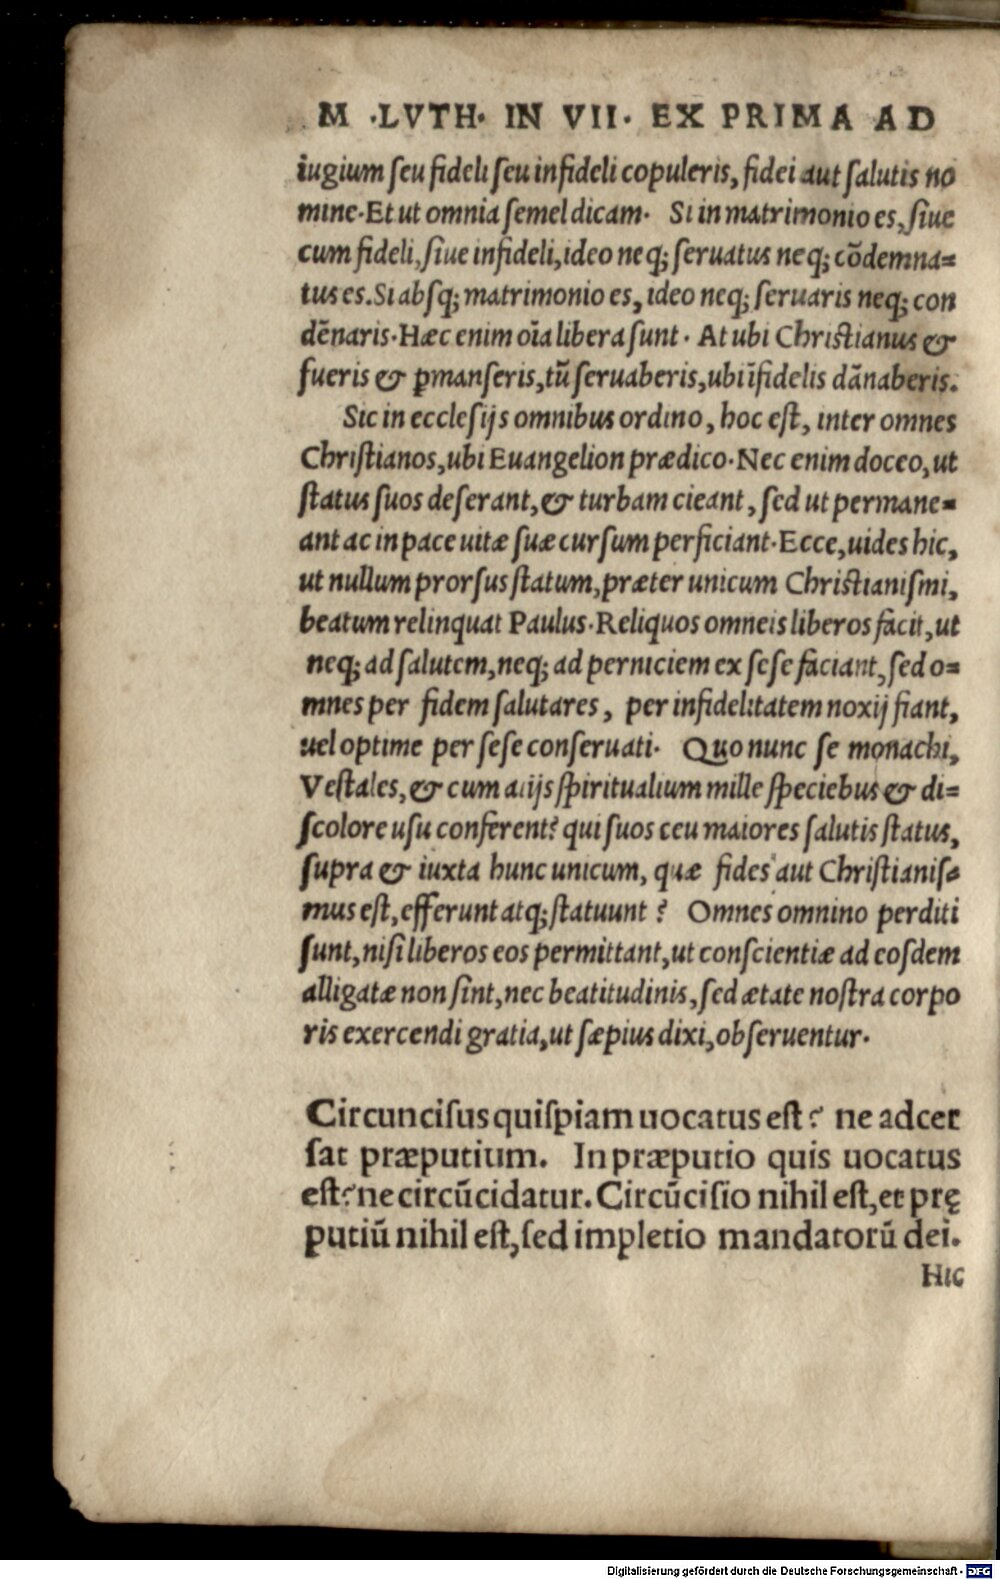 M ·LVTH· IN VII· EX PRIMA AD
iugium ſeu fideli ſeu infideli copuleris, fidei aut ſalutis no
mine·Et ut omnia ſemel dicam· Si in matrimonio es, ſiue
cum fideli, ſiue infideli, ideo neq; ſeruatus neq; cōdemna=
tus es.Si abſq; matrimonio es, ideo neq; ſeruaris neq; con
dēnaris·Hæc enim oīa libera ſunt· At ubi Chriſtianus &
fueris & ꝑmanſeris, tū ſeruaberis, ubi īfidelis dānaberis.
Sic in eccleſijs omnibus ordino, hoc eſt, inter omnes
Chriſtianos, ubi Euangelion prædico·Nec enim doceo, ut
ſtatus ſuos deſerant, & turbam cieant, ſed ut permane=
ant ac in pace uitæ ſuæ curſum perficiant·Ecce, uides hic,
ut nullum prorſus ſtatum, præter unicum Chriſtianiſmi,
beatum relinquat Paulus·Reliquos omneis liberos facit, ut
neq; ad ſalutem, neq; ad perniciem ex ſeſe faciant, ſed o=
mnes per fidem ſalutares, per infidelitatem noxij fiant,
uel optime per ſeſe conſeruati· Quo nunc ſe monachi,
Veſtales, & cum alijs ſpiritualium mille ſpeciebus & di=
ſcolore uſu conferent? qui ſuos ceu maiores ſalutis ſtatus,
ſupra & iuxta hunc unicum, quæ fides aut Chriſtianiſ=
mus eſt, efferunt atq; ſtatuunt? Omnes omnino perditi
ſunt, niſi liberos eos permittant, ut conſcientiæ ad eoſdem
alligatæ non ſint, nec beatitudinis, ſed ætate noſtra corpo
ris exercendi gratia, ut ſæpius dixi, obſeruentur·
Circunciſus quiſpiam uocatus eſt? ne adcer
ſat præputium. In præputio quis uocatus
eſt? ne circūcidatur. Circūciſio nihil eſt, et prę
putiū nihil eſt, ſed impletio mandatorū dei.
Hic
Digitalisierung gefördert durch die Deutsche Forschungsgemeinschaft - DFG